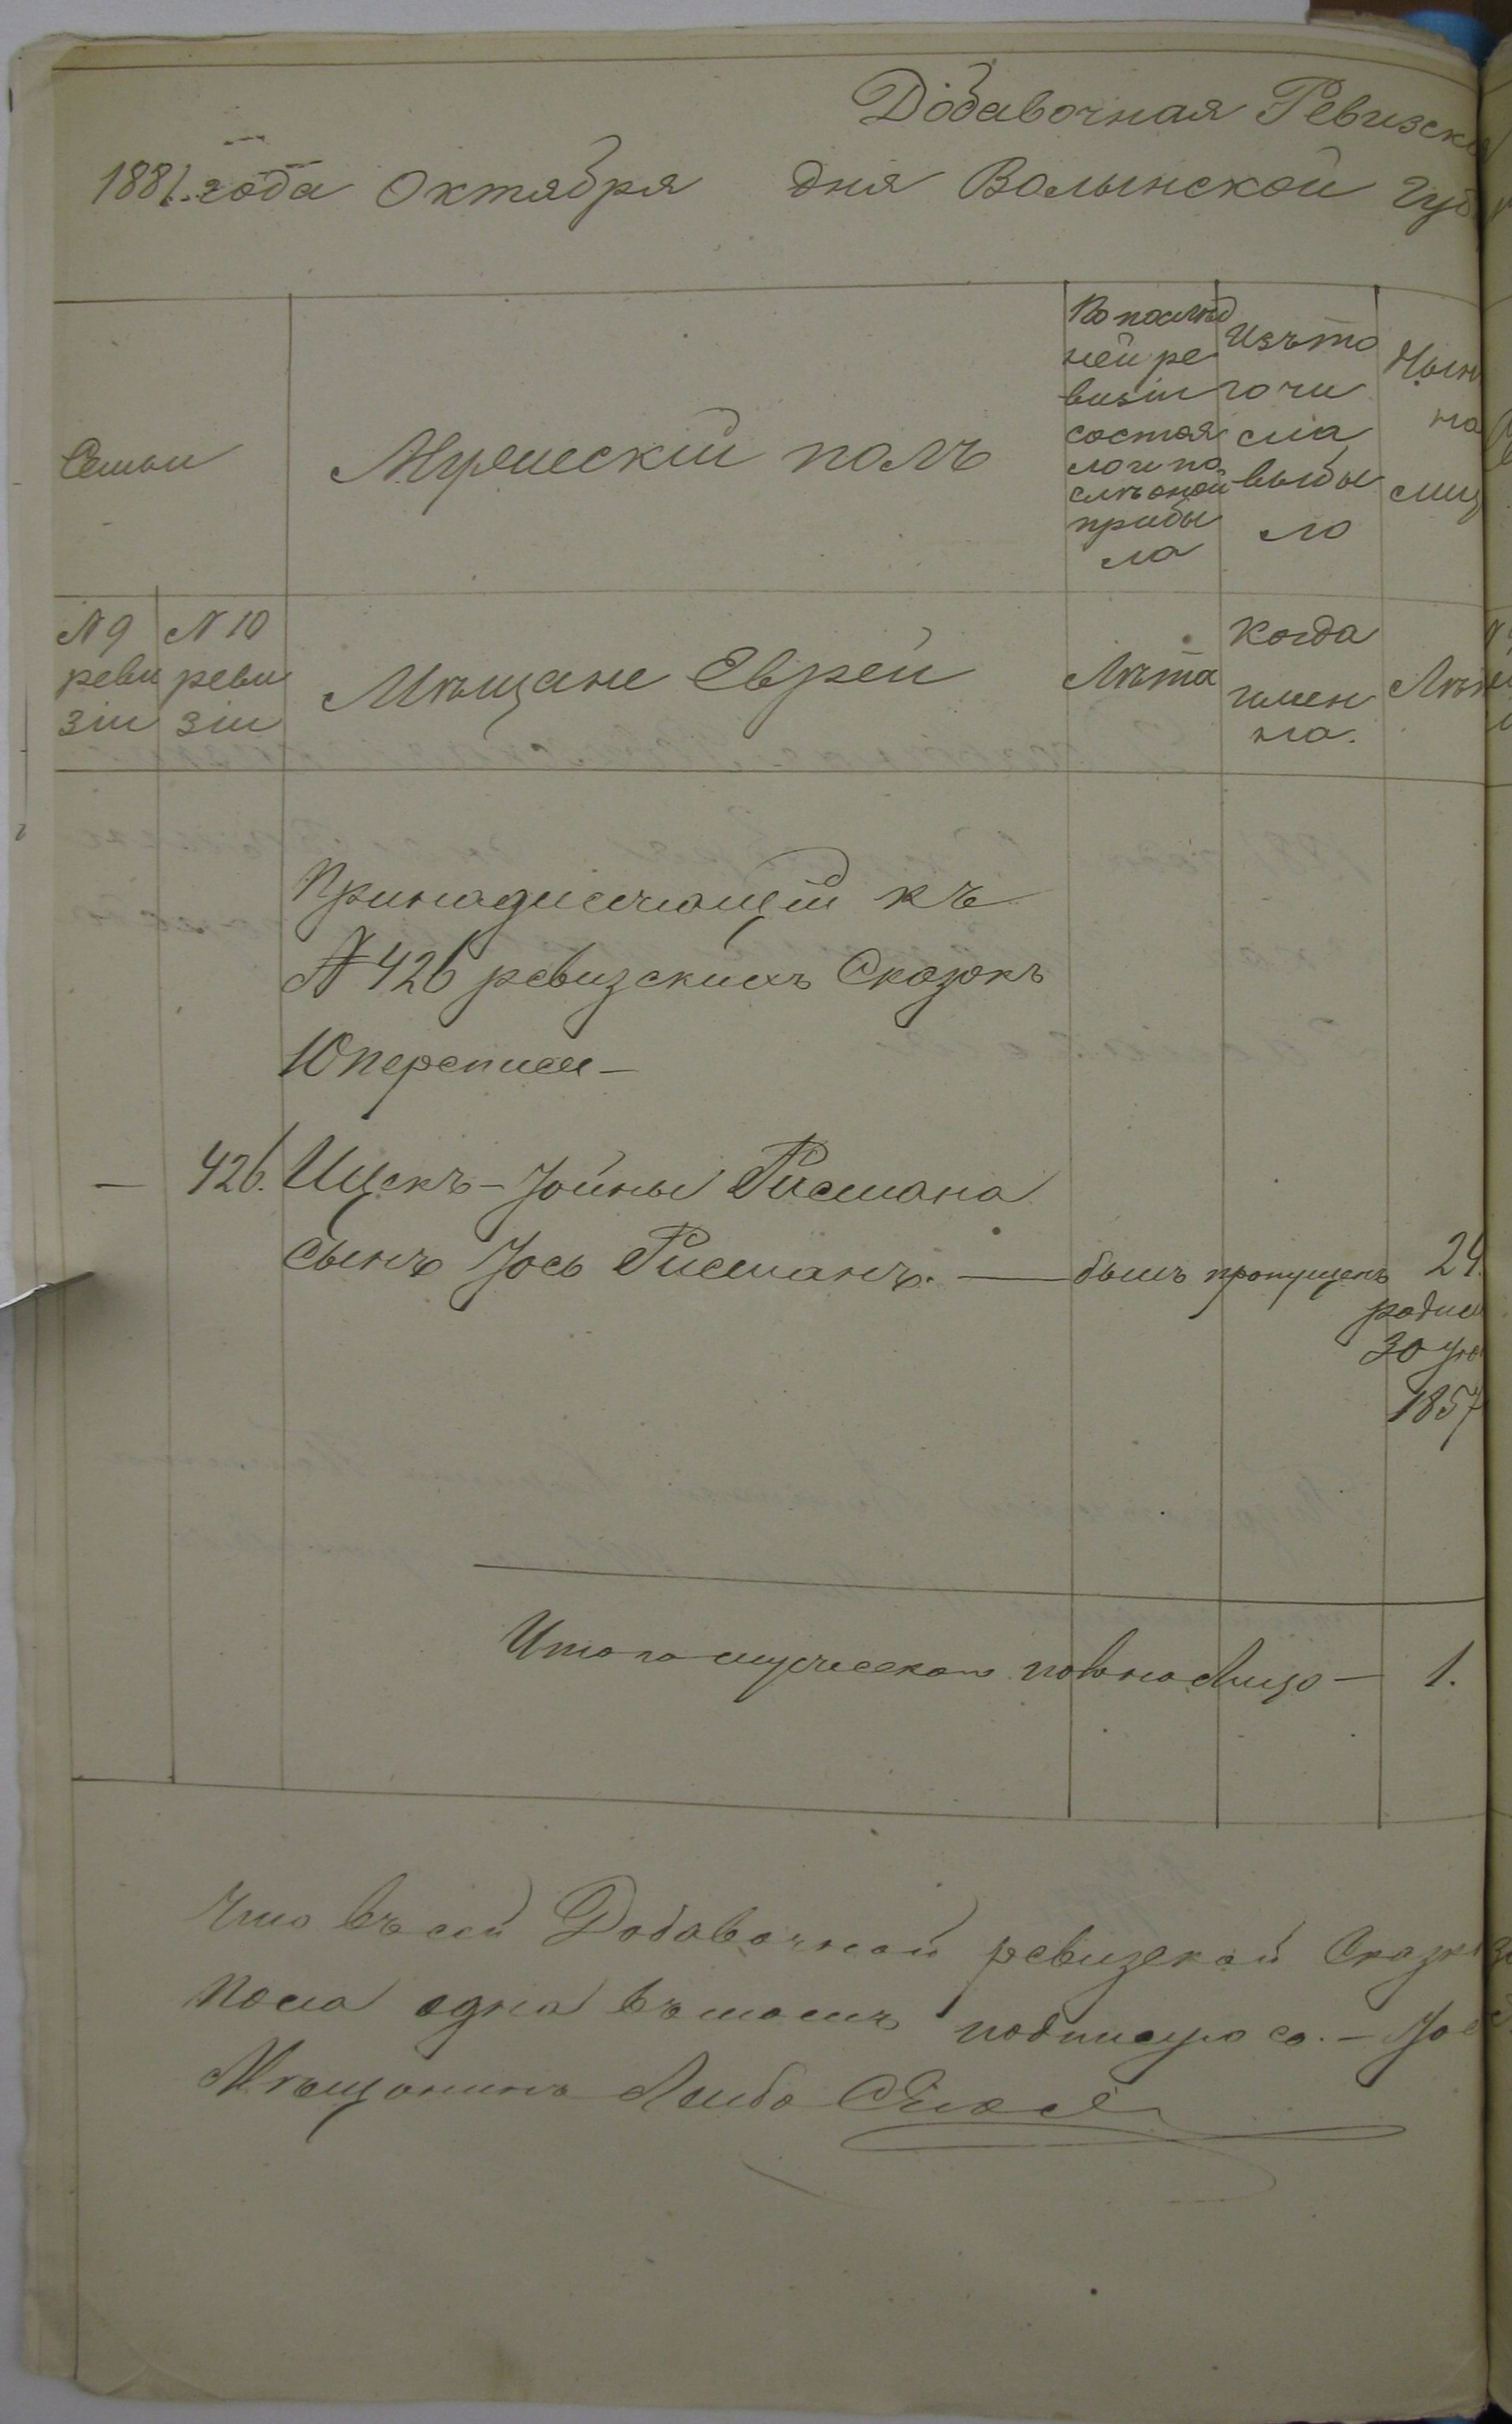 Добавочная Ревизска
1881. года Октября дня Волынской Губ
Семьи
Мужескій полъ
По послѣд
ней ре
визіи
состоя
ло и по
слѣ оной
прибы
ло
Изъ то
го чи
сла
выбы
ло
Нын
на
лиц
N 9
реви
зіи
N 10
реви
зіи
Мѣщане Евреи
Лѣта
Когда
имен
но.
Лѣт
Принадлежащій къ
№ 426 ревизскихъ Сказокъ
10 переписи –
— 426. Ицекъ - Іойны Рисмана
сынъ Іось Рисманъ. — былъ пропущенъ 24.
родил
30 Ію
1857
Итого мужескаго пола на Лицо — 1.
Что въ сей Добавочной ревизской Сказк
пола одна въ томъ подписуюсь. –
Мѣщанинъ Лейба